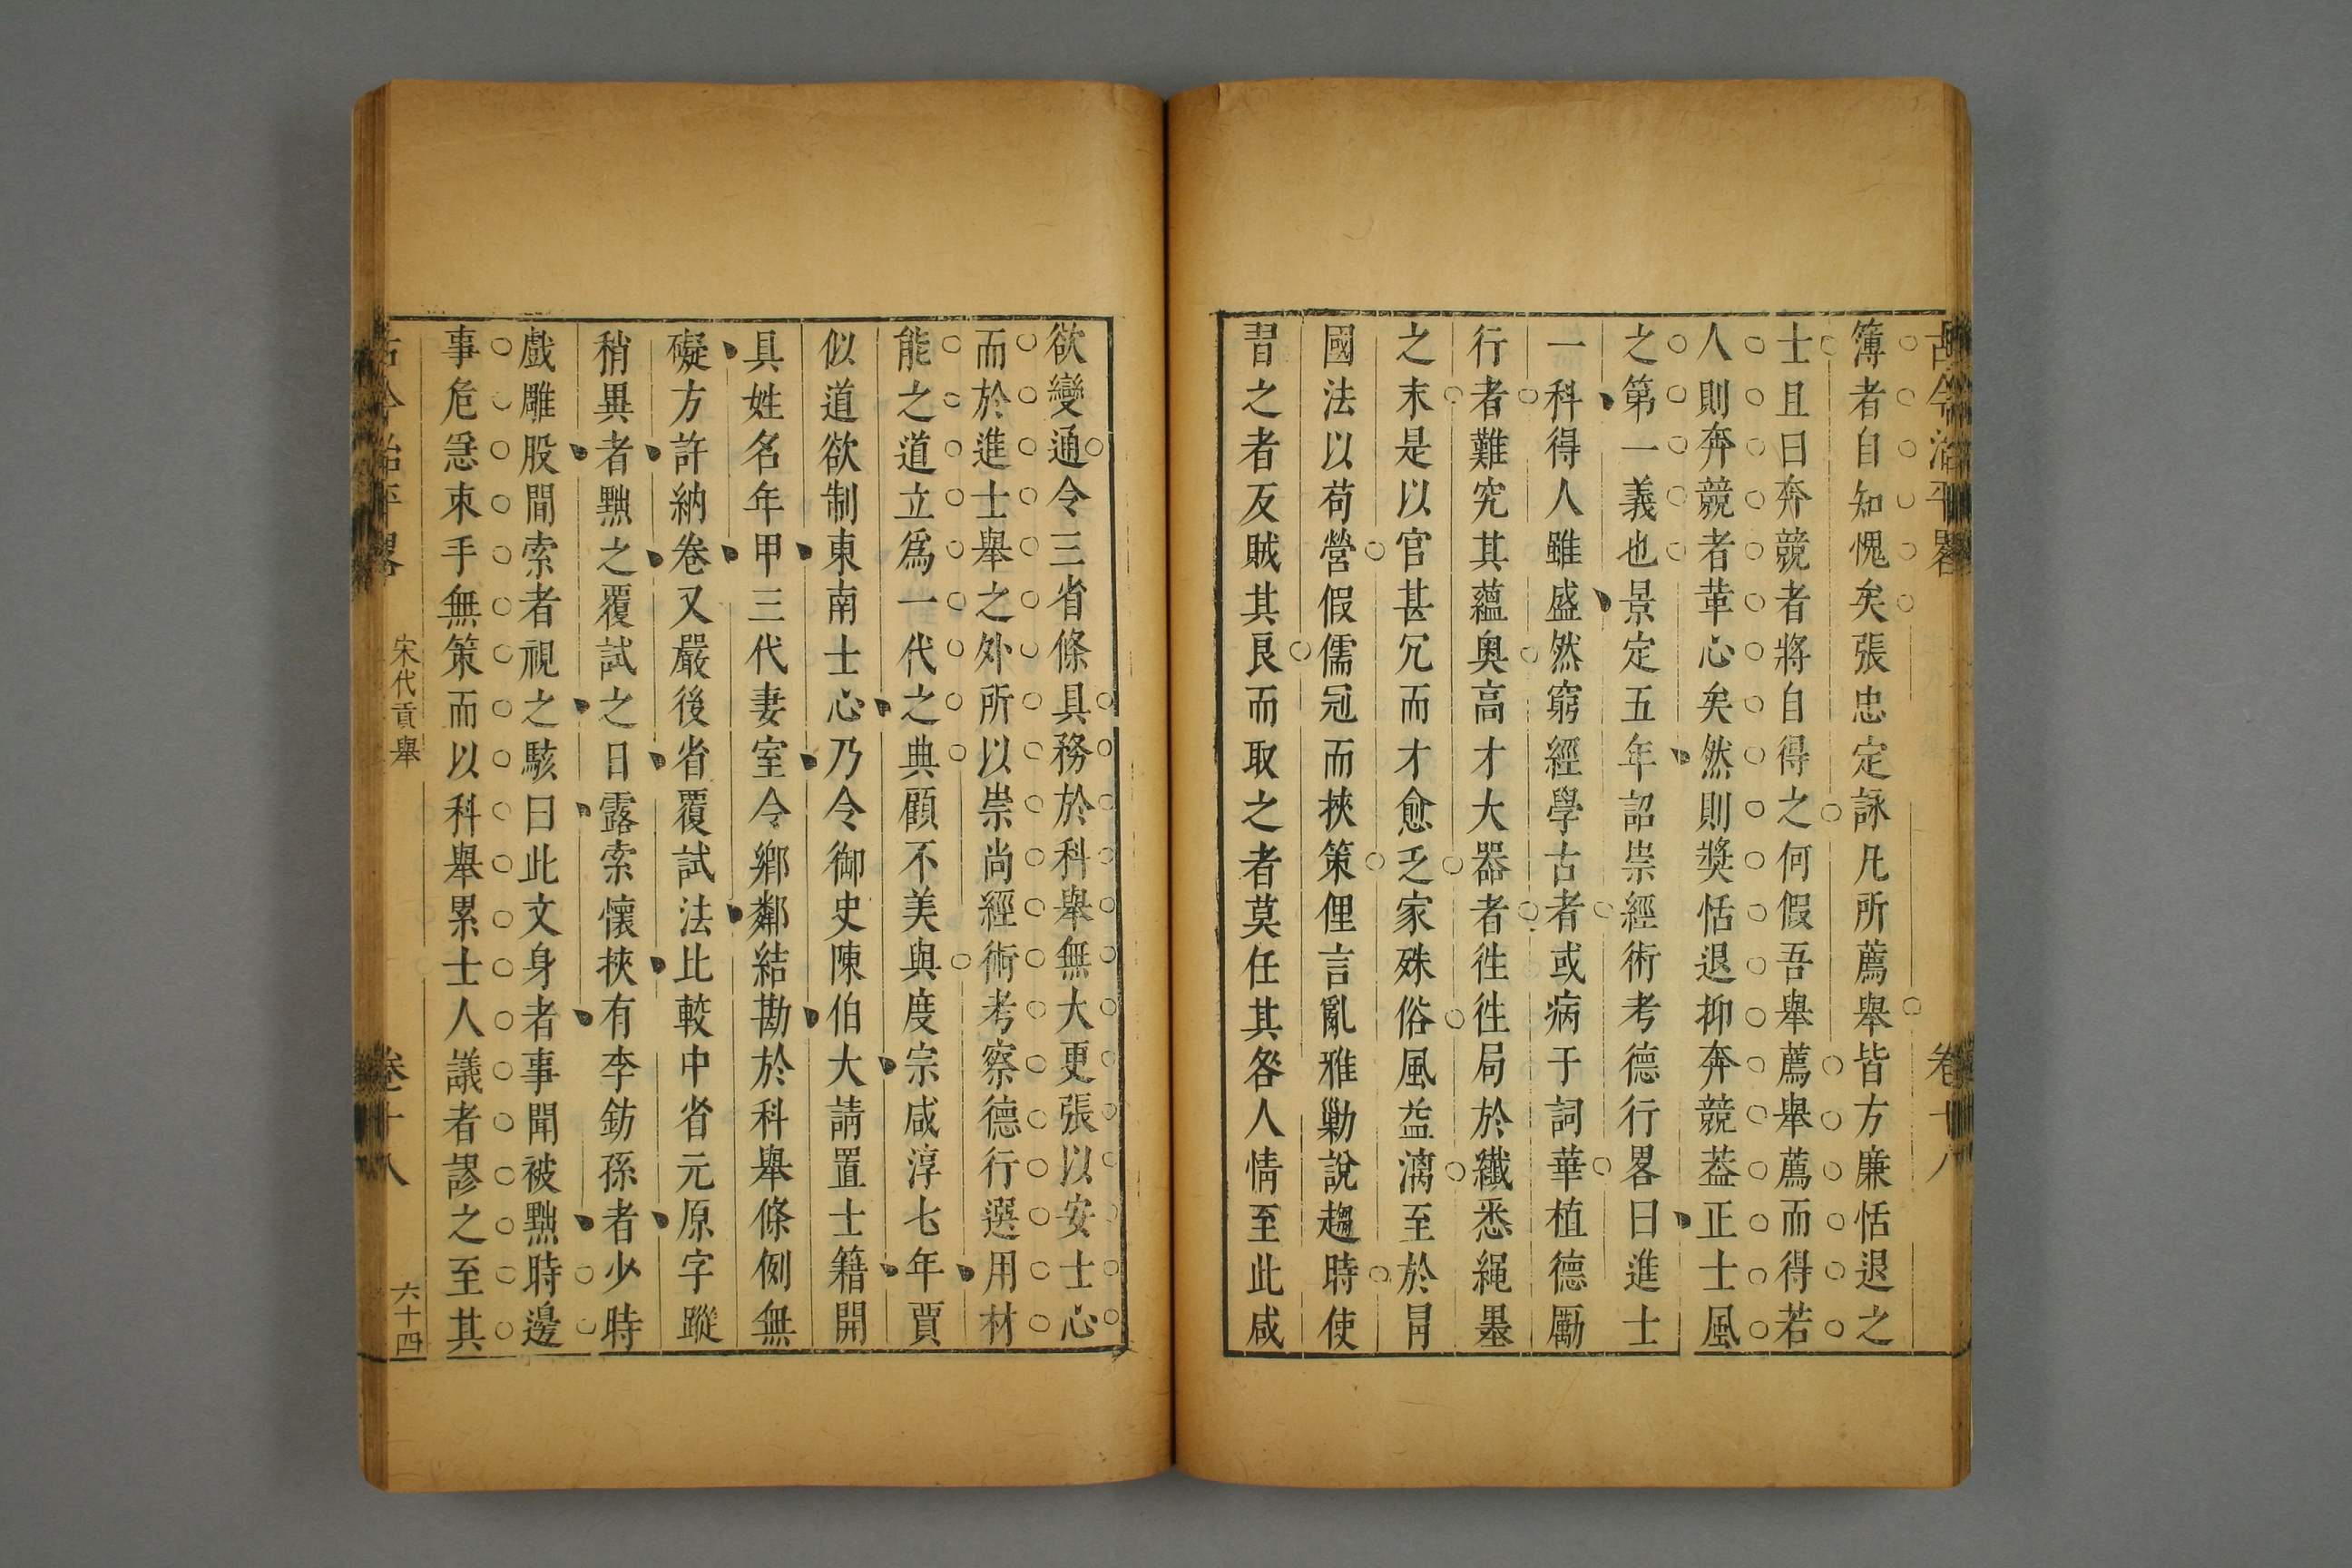 古今治平畧
卷十八
簿者自知愧矣張忠定詠凡所薦舉皆方廉恬退之
士且曰奔競者將自得之何假吾舉薦舉薦而得若
人則奔競者革心矣然則奬恬退抑奔競葢正士風
之第一義也景定五年詔崇經術考德行畧曰進士
一科得人雖盛然窮經學古者或病于詞華植德勵
行者難究其蘊奧高才大器者徃徃局於纖悉繩墨
之末是以官甚冗而才愈乏家殊俗風益漓至於冐
國法以苟營假儒冠而挾策俚言亂雅勦說趨時使
習之者反賊其良而取之者莫任其咎人情至此咸
欲變通令三省條具務於科舉無大更張以安士心
而於進士舉之外所以崇尚經術考察德行選用材
能之道立爲一代之典顧不美與度宗咸淳七年賈
似道欲制東南士心乃令御史陳伯大請置士籍開
具姓名年甲三代妻室令鄉鄰結勘於科舉條例無
礙方許納卷又嚴後省覆試法比較中省元原字蹤
稍異者黜之覆試之日露索懷挾有李鈁孫者少時
戲雕股間索者視之駭曰此文身者事聞被黜時邊
事危急束手無策而以科舉累士人議者謬之至其
古今治平畧
宋代貢舉
卷十八
六十四